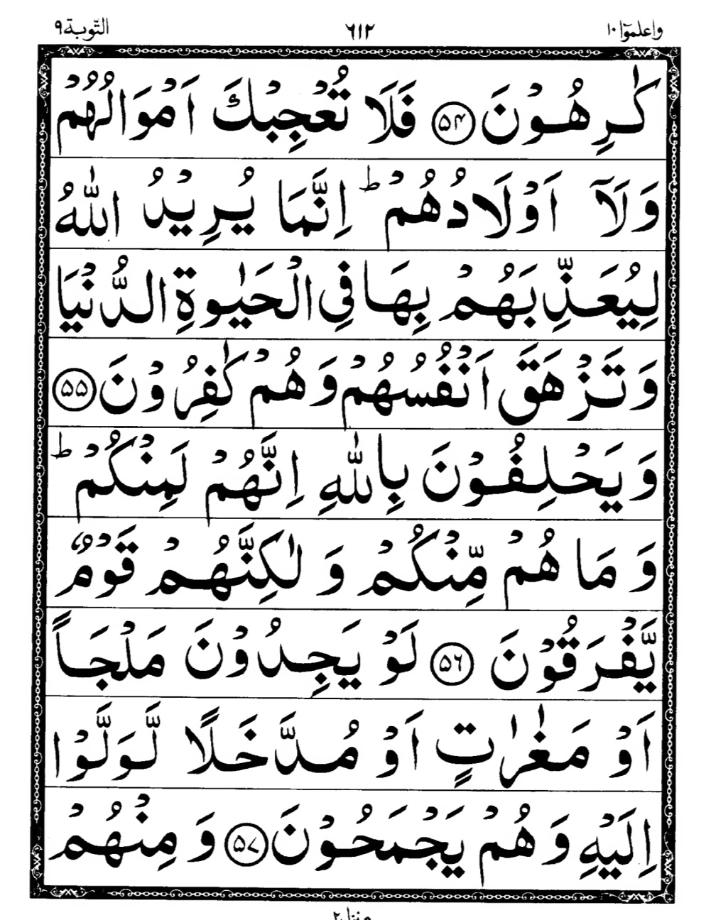 واعلموۤا ١٠ ٦١٢ التّوبة ٩
كٰرِهُوْنَ ﴿۵۴﴾ فَلَا تُعْجِبْكَ اَمْوَالُهُمْ
وَلَاۤ اَوْلَادُهُمْ ؕ اِنَّمَا يُرِيْدُ اللّٰهُ
لِيُعَذِّبَهُمْ بِهَا فِي الْحَيٰوةِ الدُّنْيَا
وَتَزْهَقَ اَنْفُسُهُمْ وَهُمْ كٰفِرُوْنَ ﴿۵۵﴾
وَيَحْلِفُوْنَ بِاللّٰهِ اِنَّهُمْ لَمِنْكُمْ ؕ
وَمَا هُمْ مِّنْكُمْ وَلٰكِنَّهُمْ قَوْمٌ
يَّفْرَقُوْنَ ﴿۵۶﴾ لَوْ يَجِدُوْنَ مَلْجَاً
اَوْ مَغٰرٰتٍ اَوْ مُدَّخَلًا لَّوَلَّوْا
اِلَيْهِ وَهُمْ يَجْمَحُوْنَ ﴿۵۷﴾ وَمِنْهُمْ
منزل ٢